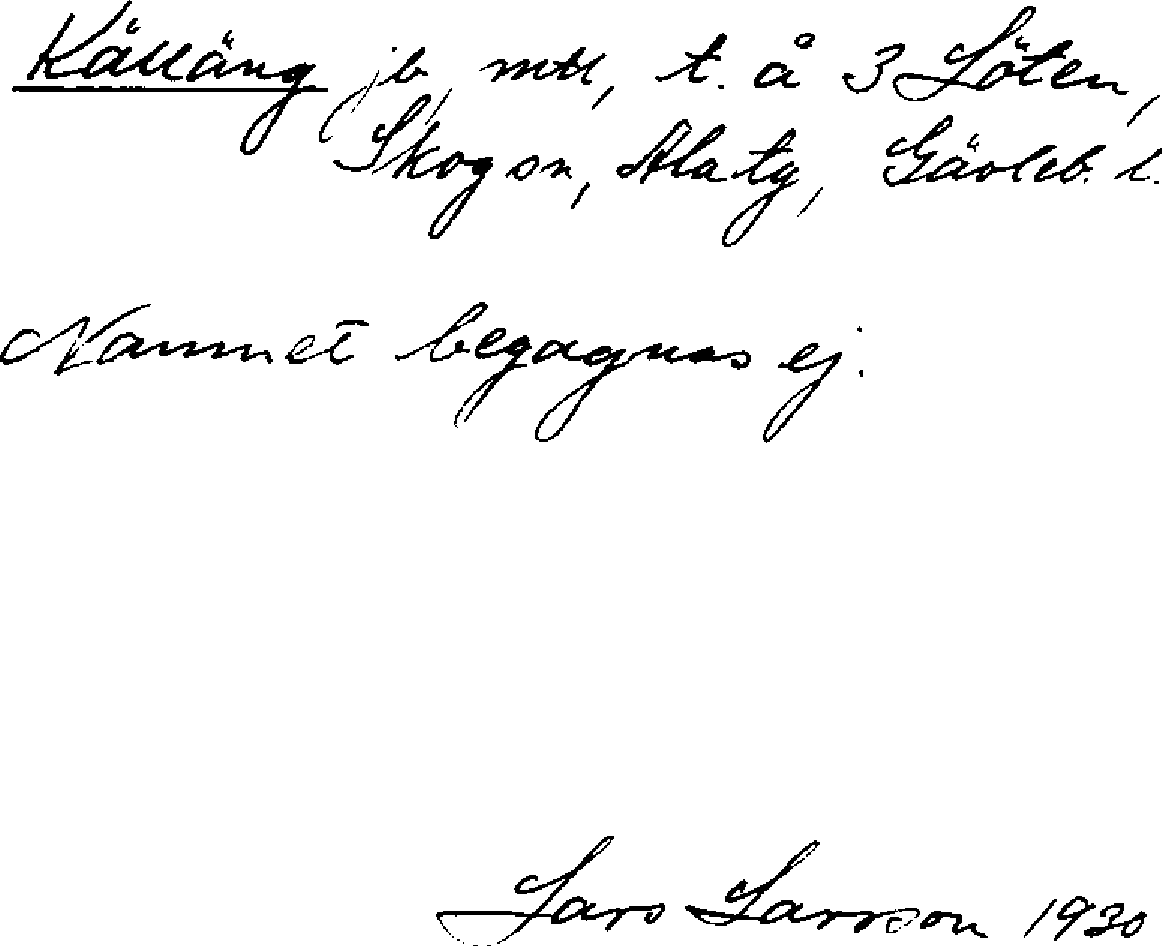 Källäng jb, mtl, t. å 3 Löten,
Skogsn, Ala tg, Gävleb. l.
Namnet begagnas ej.
Lars Larsson 1930